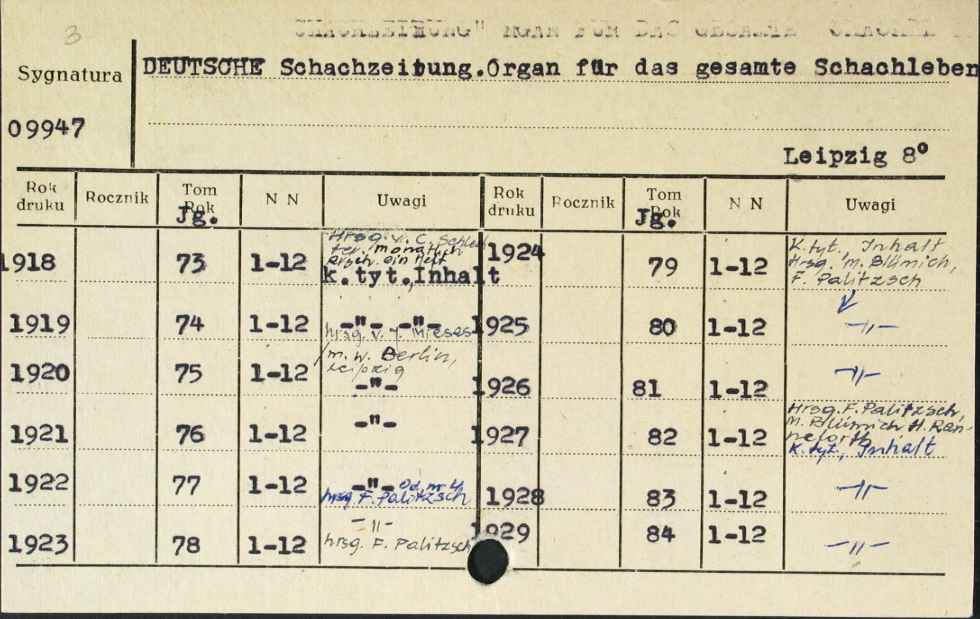 3
Sygnatura
DEUTSCHE Schachzeitung.Organ für das gesamte Schachleben
09947
Leipzig 8°
Rok druku Rocznik Tom Rok Jg. N N Uwagi Rok druku Rocznik Tom Rok Jg. N N Uwagi
1918 73 1-12 Hrsg. v. C. Schlechter. monatlich ein Heft
k.tyt.,Inhalt
1919 74 1-12 -"- -"-
hrsg. v. J. Mieses
1920 75 1-12 m. w. Berlin,
Leipzig
-"-
1921 76 1-12 -"-
1922 77 1-12 -"- Od nr 4
hrsg. F. Palitzsch
1923 78 1-12 -"-
hrsg. F. Palitzsch
1924 79 1-12 K. tyt., Inhalt
Hrsg. M. Blümich,
F. Palitzsch
1925 80 1-12 -"-
1926 81 1-12 -"-
1927 82 1-12 Hrsg. F. Palitzsch,
M. Blümich H. Ran-
neforth
K. tyt., Inhalt
1928 83 1-12 -"-
1929 84 1-12 -"-